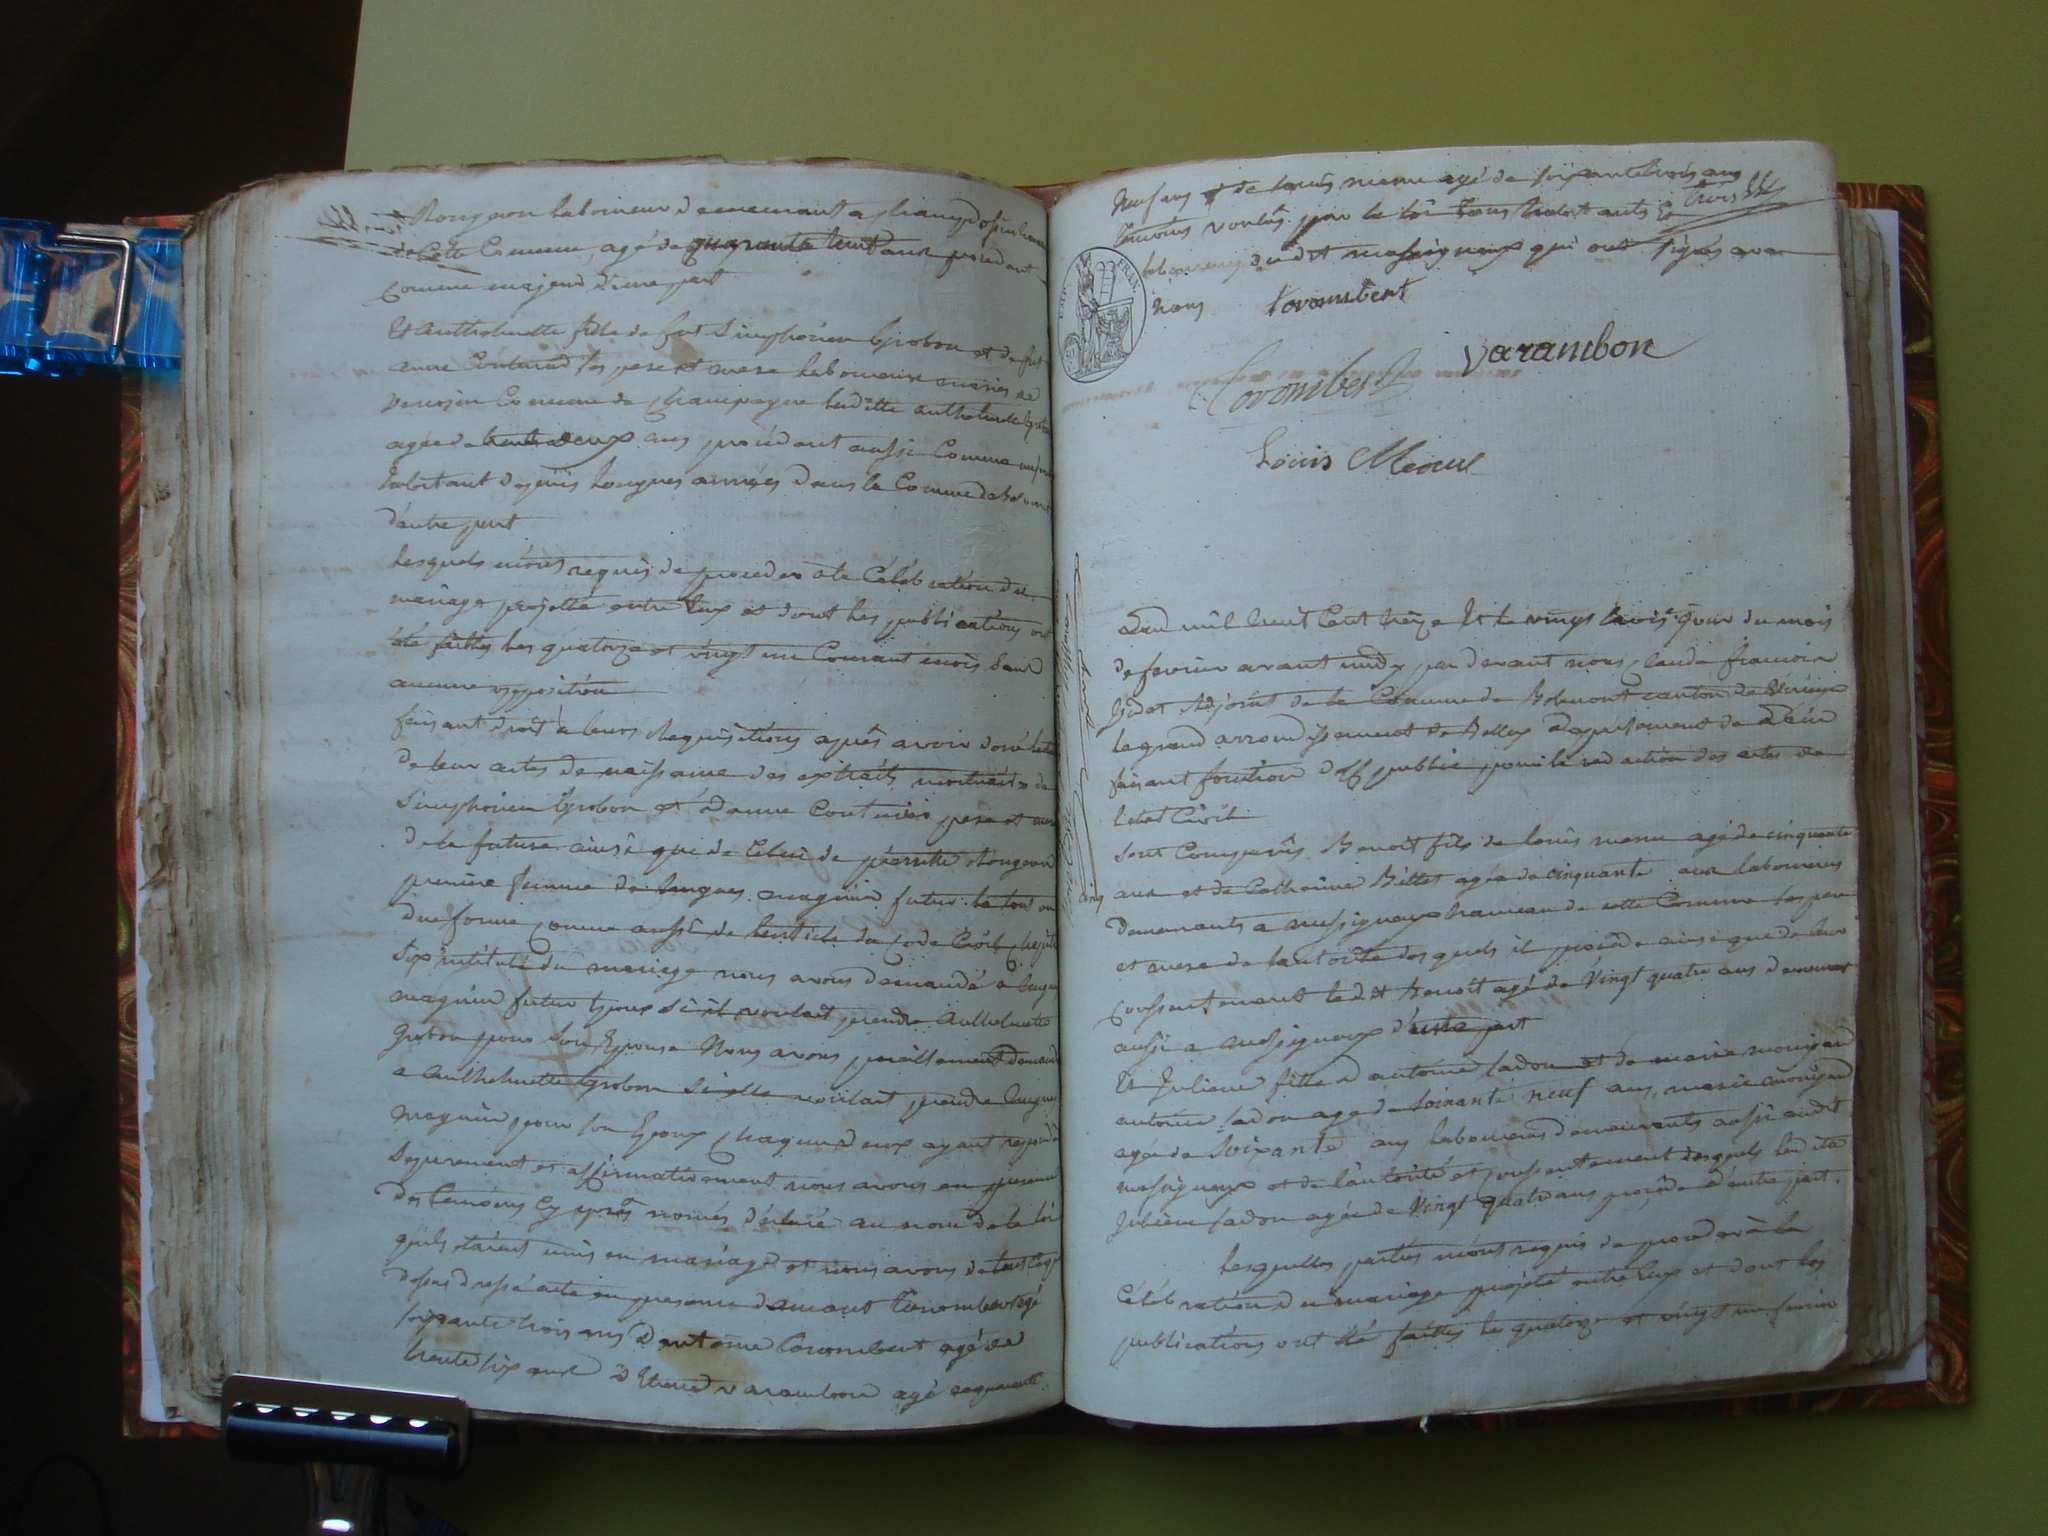 Rongeon laboureur demeurant a
de Cette Commune, agé de quarante huit ans procedant
Comme majeur d'une part
Et Anthelmette fille de feu Simphorien Grobon et de feu
anne Couturier ses pere et mere laboureurs mariés de
Commune de Champagne laditte anthelmette Grobon
agée de trente deux ans procédant aussi Comme
habitant depuis longues années dans la Commune de Belmont
d'autre part
Lesquels m'ont requis de proceder a la Célébration du
mariage projetté entre Eux et dont les publications ont
été faittes les quatorze et vingt un Courant mois Sans
aucune opposition
faisant droit a leurs Requisitions après avoir doné lecture
de leur actes de naissance des extraits mortuaires de
Simphorien Grobon et d'anne Couturier pere et mere
de la future ainsi que de Celui de pierrette Rongeon
premiere femme de hugues magnin futur le tout en
due forme comme aussi de l'article du Code Civil Chapitre
Six intitulé du mariage nous avons demandé a hugues
magnin futur Epoux si il voulait prendre Anthelmette
Grobon pour Son Epouse Nous avons pareillement demandé
a Anthelmette Grobon Si elle voulait prendre hugues
magnin pour Son Epoux Chaqun d'eux ayant repondu
Separement et affirmativement nous avons en presence
des temoins Cy après només déclaré au nom de la loi
quils étaient unis en mariage et nous avons de tout
dressé acte en presence damant Tavombert agé
soixante trois ans d'antoine Cavombert agé de
trente six ans d'Etiene varambon agé cinquante
Neuf ans et de Louis menu agé de soixante trois ans
temoins voulus par la loi tous habitants
dudit massigneux qui ont signés avec
Nous Tavombert
varambon
Cavombert
Louis Menu
EMP. FRAN.
L'an mil huit Cent treize Et le vingt trois jour du mois
de fevrier avant midy par devant nous Claude francois
Adjoint de la Commune de Belmont canton de Virieux
le grand arrondissement de Belley département de L'ain
faisant fonction d'off public pour la redaction des actes de
l'etat Civil
Sont Comparûs Benoit fils de louis menu agé de cinquante
cinq ans et de Catherine Billet agée de cinquante ans laboureurs
Demeurants a massigneux hameau de cette Commune ses pere
et mere de l'autorité desquels il procède ainsi que de leur
Consentement ledit Benoit agé de Vingt quatre ans demeurant
aussi a massigneux d'une part
Et Juliene fille d'antoine ladon et de marie mouijard
antoine ladon agé de soixante neuf ans, marie mouijard
agée de Soixante ans laboureurs demeurants aussi audit
massigneux et de l'autorité et consentement desquels laditte
Juliene ladon agée de Vingt quatre ans procède d'autre part.
Lesquelles parties m'ont requis de proceder à la
Célébration du mariage projetté entre Eux et dont les
publications ont été faittes les quatorze et vingt un fevrier